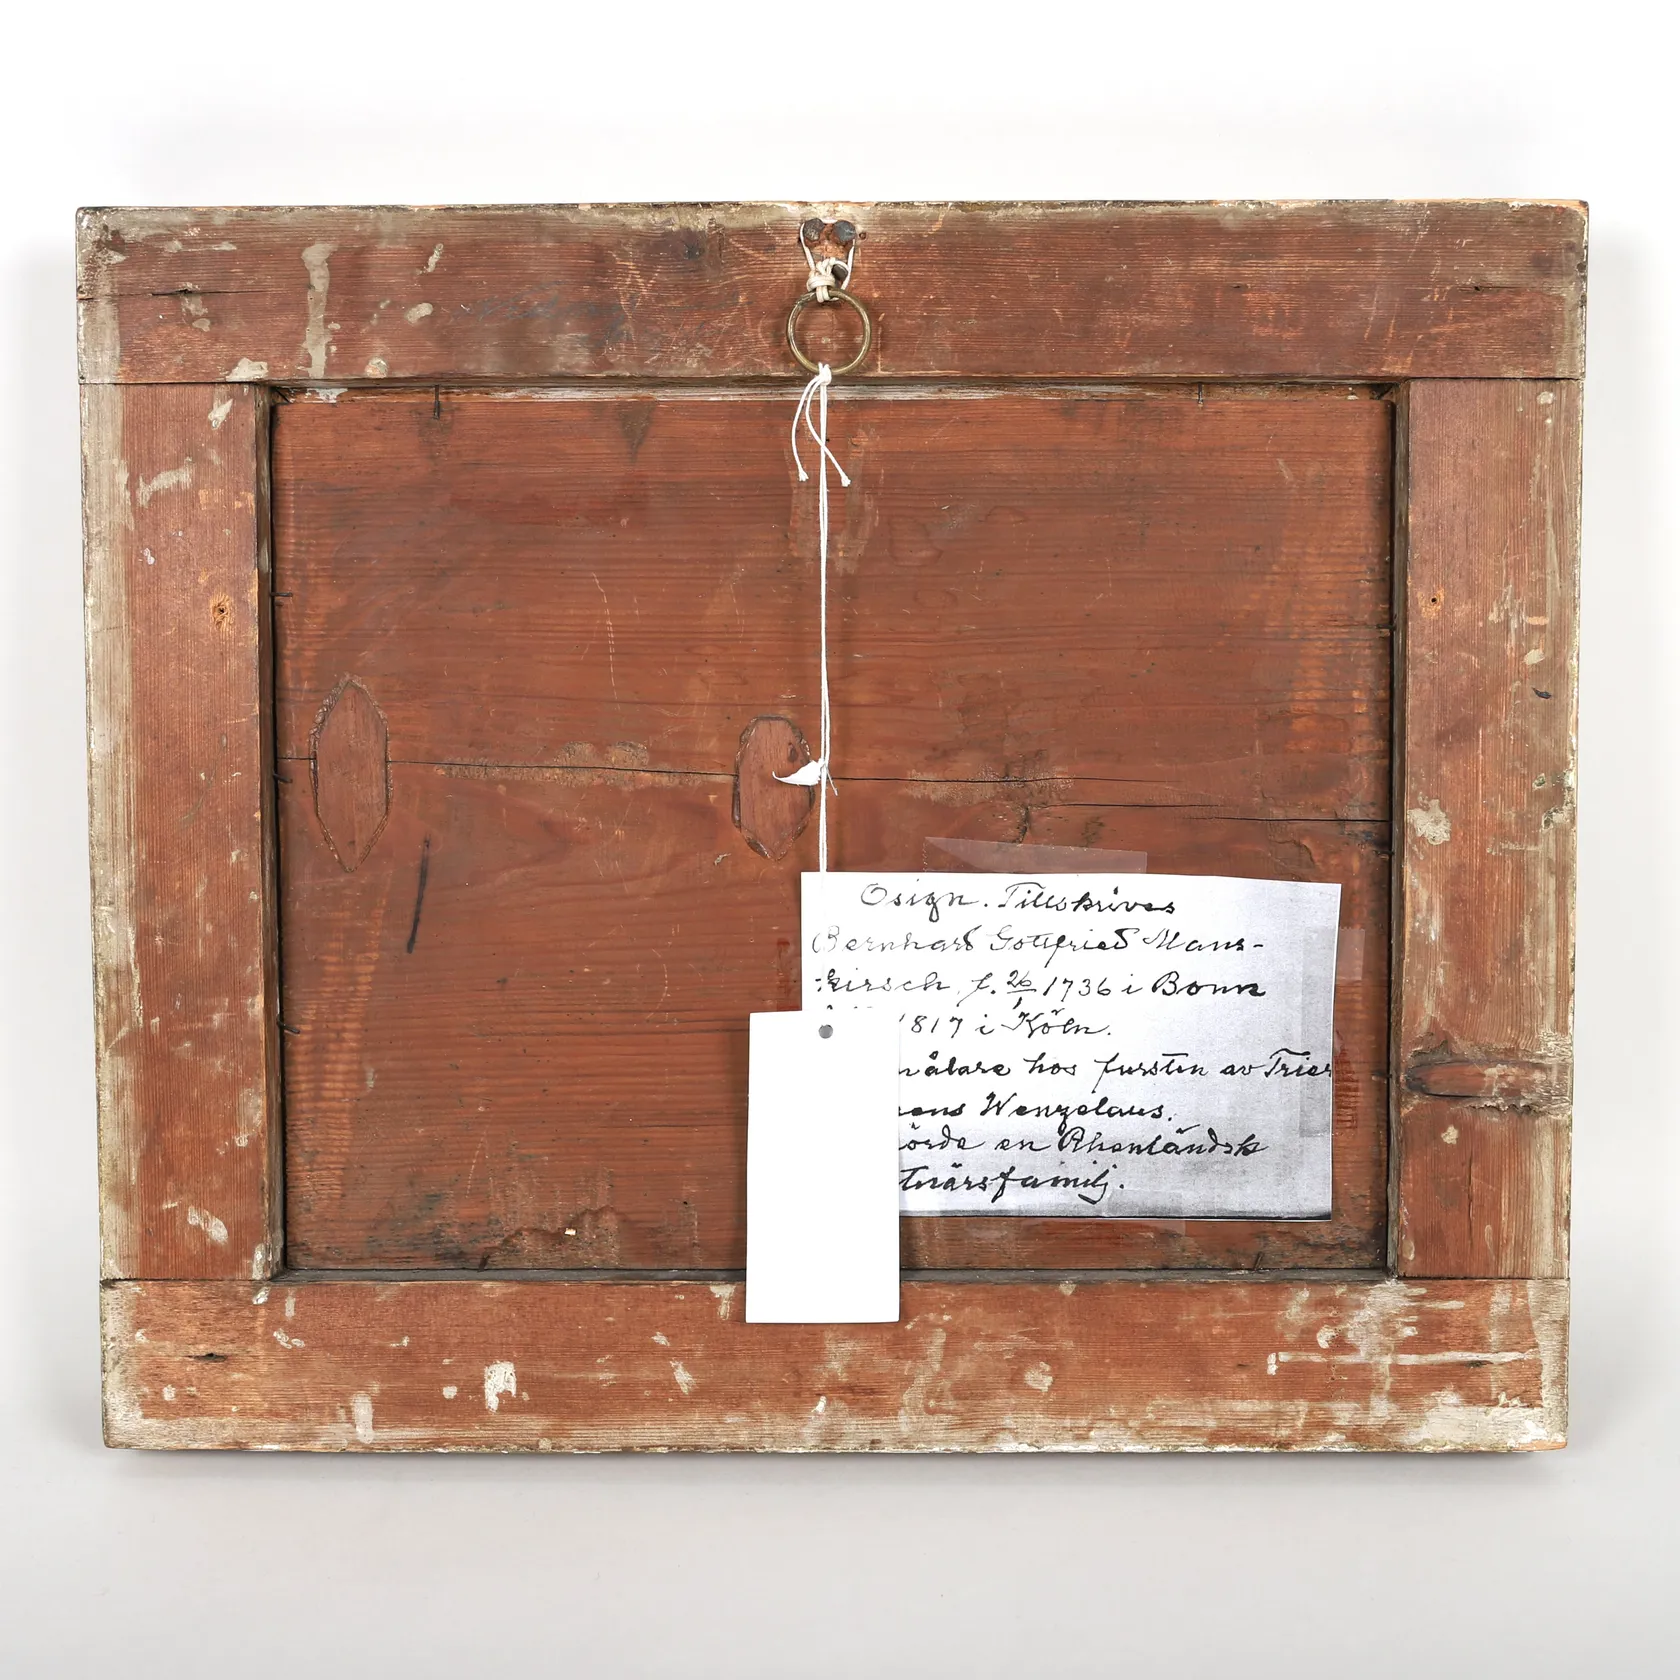 Osign. Tillskrives
Bernhard Gottfried Mans-
kirsch f. 26/1 1736 i Bonn
1817 i Köln.
målare hos fursten av Trier
Wenzelaus.
en Rhenländsk